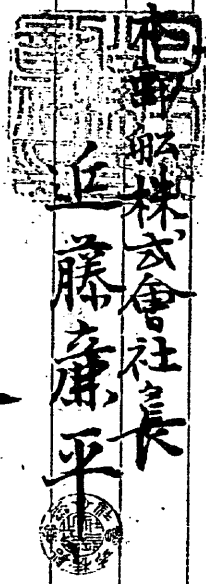 本郵船株式會社長
近藤廉平